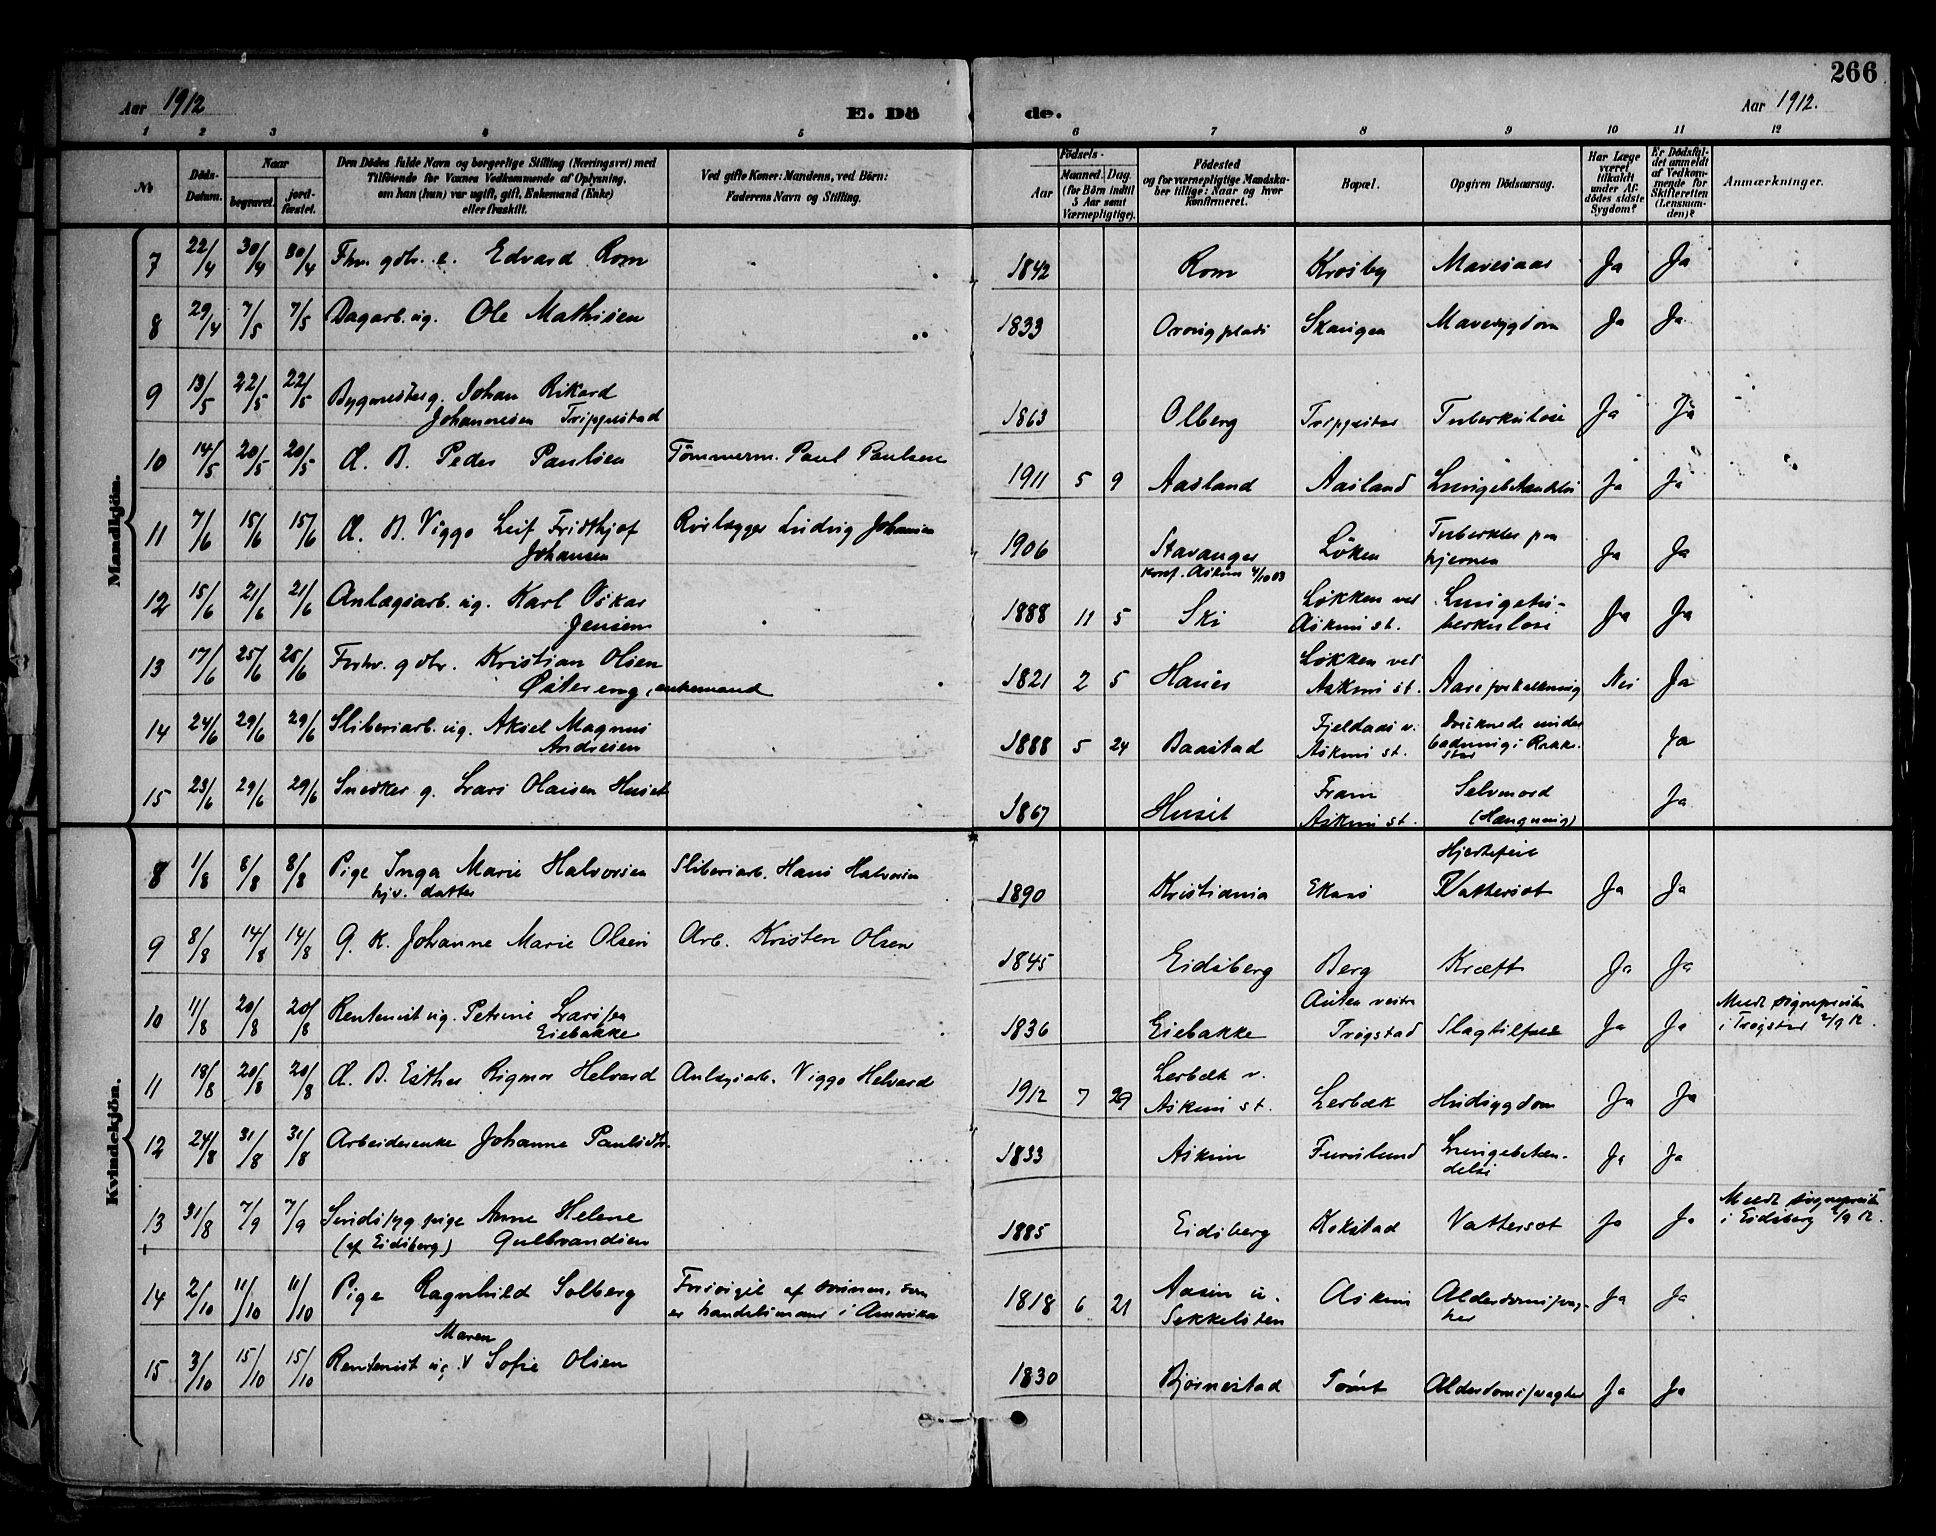 266
Aar 1912
E. Dö
de.
Aar 1912.
1 2 3 4 5 6 7 8 9 10 11 12
No
Döds-Datum.
Naar
begravet.
jordfæstet.
Den Dödes fulde Navn og borgerlige Stilling (Næringsvei) med
Tilföiende for Voxnes Vedkommende af Oplysning,
om han (hun) var ugift, gift, Enkemand (Enke)
eller fraskilt.
Ved gifte Koner: Mandens, ved Börn:
Faderens Navn og Stilling.
Födsels-
Aar
Maaned. Dag.
(for Börn indtil
5 Aar samt
Værnepligtige).
Födested
og for værnepligtige Mandska-
ber tillige: Naar og hvor
Konfirmeret.
Bopæl.
Opgiven Dödsaarsag.
Har Læge
været
tilkaldt
under Af-
dödes sidste
Sygdom?
Er Dödsfal-
det anmeldt
af Vedkom-
mende for
Skifteretten
(Lensman-
den)?
Anmærkninger.
Mandkjön.
7 22/4 30/4 30/4 Fhv. gdbr. e. Edvard Rom 1842 Rom Krosby Ja Ja
8 29/4 7/5 7/5 Dagarb. ug. Ole Mathisen 1833 Skaugen Mavesygdom Ja Ja
9 13/5 22/5 22/5 Bygmester g. Johan Rikard
Johannesen Trippestad 1863 Olberg Trippestad Tuberkulose Ja Ja
10 14/5 20/5 20/5 d. B. Peder Paulsen Tömmerm. Paul Paulsen 1911 5 9 Aasland Aasland Ja Ja
11 7/6 15/6 15/6 d. B. Viggo Leif Fridthjof
Johansen Rörlægger Ludvig Johansen 1906 Stavanger Löken Tuberkler paa
hjernen Ja Ja
12 15/6 21/6 21/6 Anlægsarb. ug. Karl Oskar
Jensen 1888 11 5 konf. Askim 4/10 03
Ski Løkken ved
Askim st. Lungetu-
berkulose Ja Ja
13 17/6 25/6 25/6 Forhv. gdbr. Kristian Olsen
Østereng, enkemand 1821 2 5 Løkken ved
Askim st. Aareforkalkning Nei Ja
14 24/6 29/6 29/6 Sliberiarb. ug. Aksel Magnus
Andresen 1888 5 24 Baastad Fjeldaas v.
Askim st. druknede under
badning i Ja
15 23/6 29/6 29/6 Snedker g. Lars Olausen Huset 1867 Huset Fram
Askim st. Selvmord
(Hængning) Ja
Kvindekjön.
8 1/8 8/8 8/8 Pige Inga Marie Halvorsen
hjv. datter Sliberiarb. Hans Halvorsen 1890 Kristiania Ekaas Hjertefeil
Vattersot Ja Ja
9 8/8 14/8 14/8 G. K. Johanne Marie Olsen Arb. Kristen Olsen 1845 Eidsberg Berg Kræft Ja Ja
10 11/8 20/8 20/8 Rentenist ug. Petrine
Eiebakke 1836 Eiebakke Auten vestre
Trøgstad Slagtilfælde Ja Ja Meldt sognepresten
i Trøgstad 2/9 12.
11 18/8 20/8 20/8 d. B. Esther Rigmor Helvard Anlægsarb. Viggo Helvard 1912 7 Lerbæk v.
Askim st. Lerbæk Hudsygdom Ja Ja
12 24/8 31/8 31/8 Arbeiderenke Johanne Paulsdtr. 1833 Askim Furulund Lungebetæn-
delse Ja Ja
13 31/8 7/9 7/9 Sindssyg pige Anne Helene
(af Eidsberg) Gulbrandsen 1885 Eidsberg Kokstad Vattersot Ja Ja Meldt sognepresten
i Eidsberg 2/9 12.
14 2/10 11/10 11/10 Pige Ragnhild Solberg Forsörget af sönnen, som
er handelsmand i Amerika 1818 6 21 Aasen u.
Sekkelsten Askim Alderdomssvag-
hed Ja Ja
15 3/10 15/10 15/10 Rentenist ug. Maren Sofie Olsen 1830 Bjørnestad Alderdomssvaghed Ja Ja